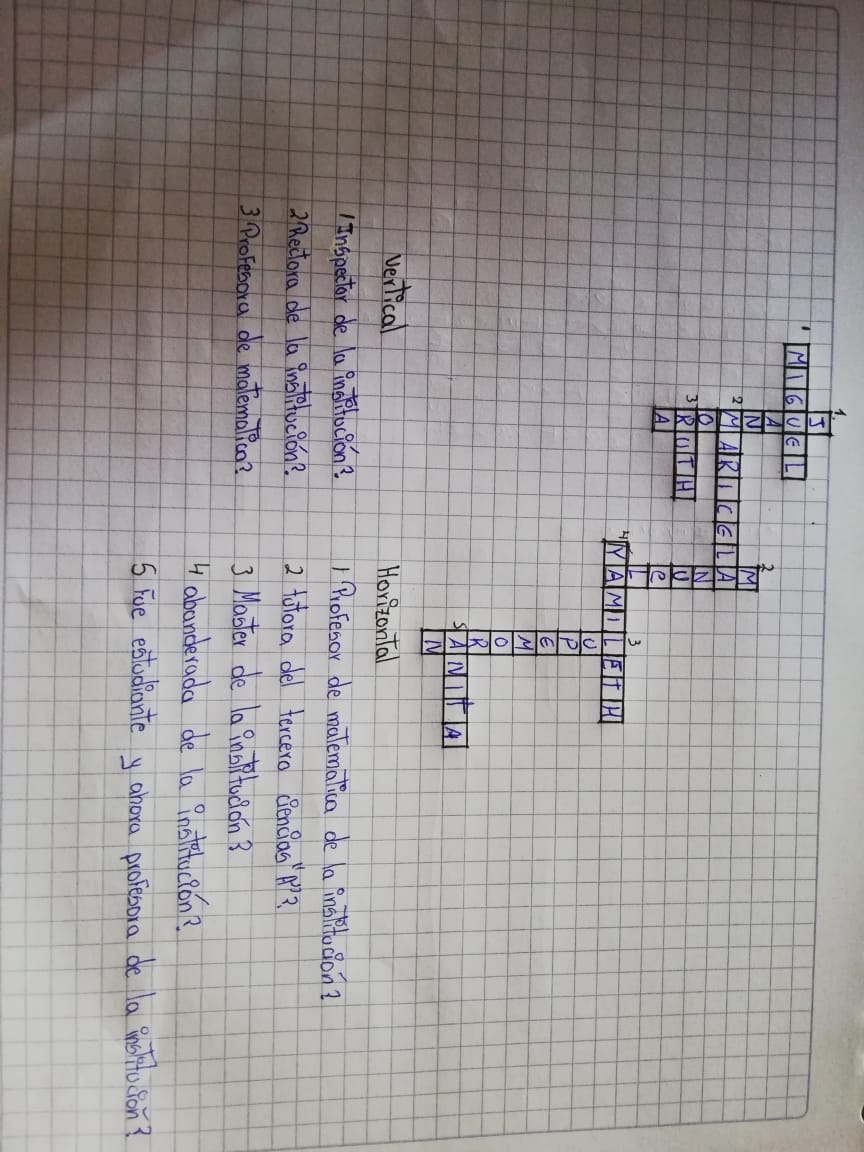 1 JUANMORA
1 MIGUEL
2 MANUELA
2 MARICELA
3 RUTH
3 LUPEMORAN
4 YAMILETH
5 ANITA
Vertical
1 Inspector de la institución?
2 Rectora de la institución?
3 Profesora de matematica?
Horizontal
1 Profesor de matematica de la institución?
2 tutora del tercero ciencias "A"?
3 Master de la institución?
4 abanderada de la institución?
5 Fue estudiante y ahora profesora de la institución?